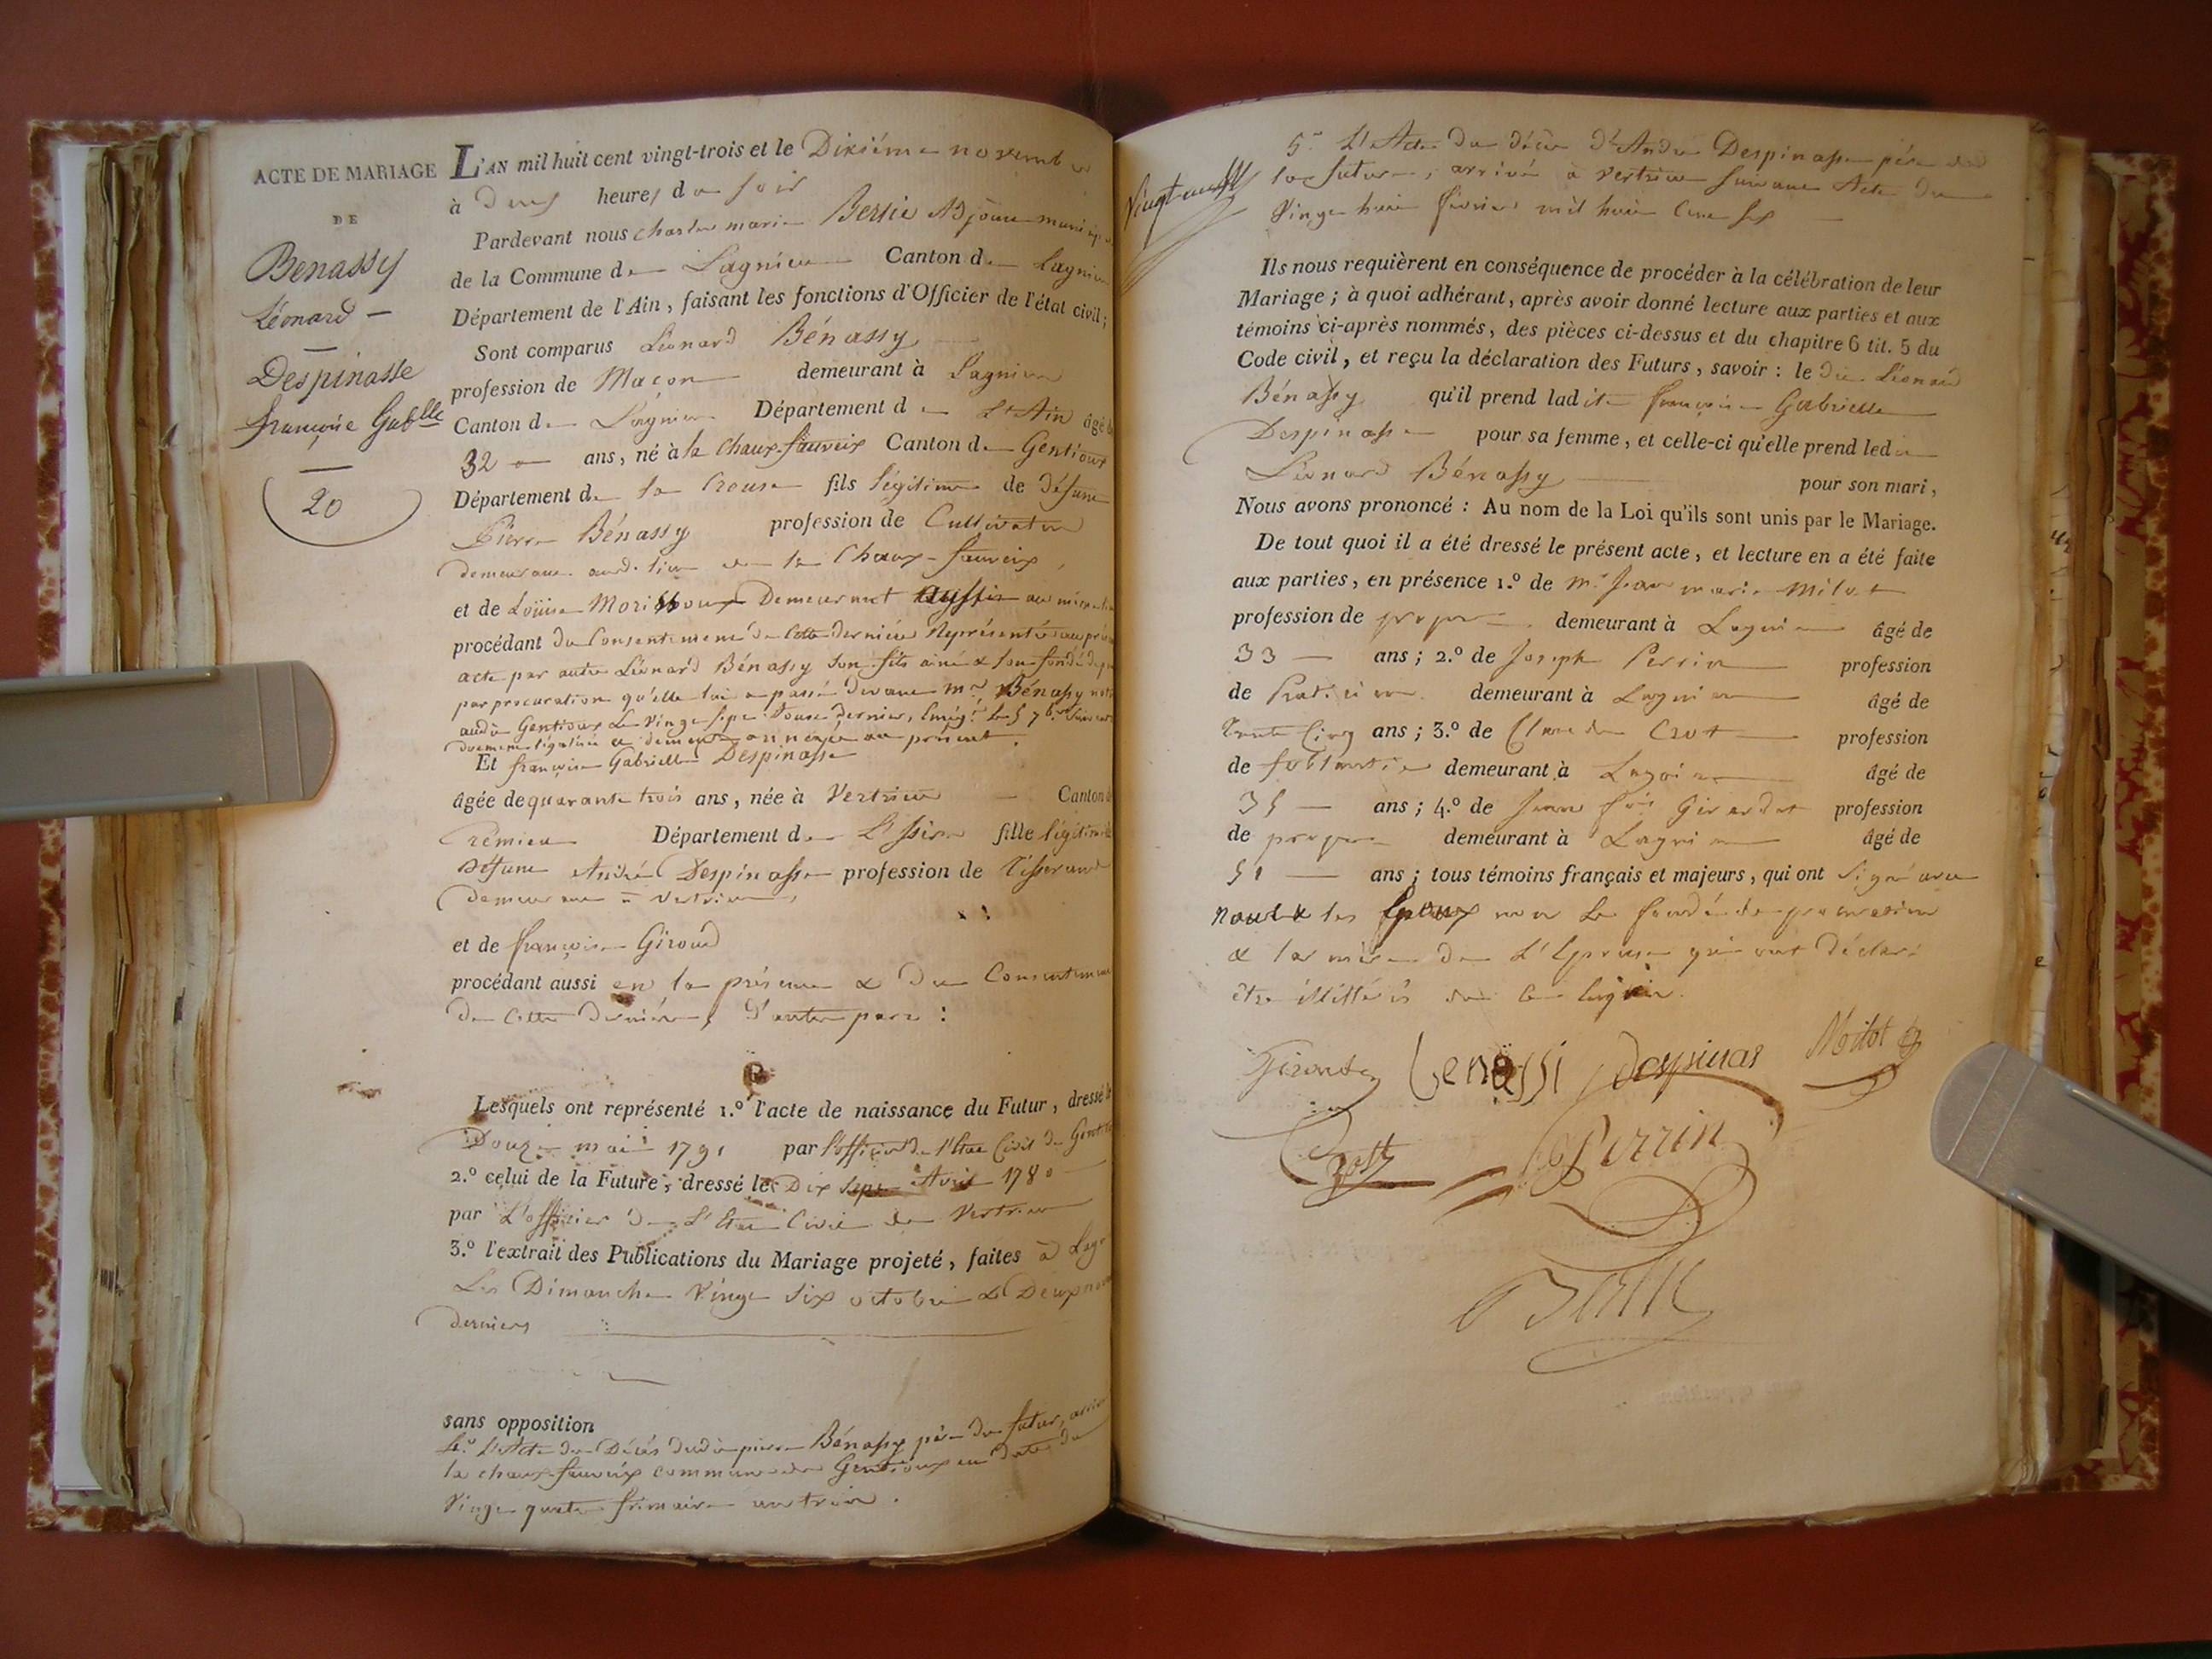 ACTE DE MARIAGE
DE
Benassy
Léonard —
Despinasse
françoise Gab.lle
20
L'AN mil huit cent vingt-trois et le Dixième novembre
à Deux heures du soir
Pardevant nous charles marie Bertié Adjoint municip
de la Commune de Lagnieu Canton de Lagnieu
Département de l'Ain, faisant les fonctions d'Officier de l'état civil;
Sont comparus Léonard Bénassy
profession de Maçon demeurant à Lagnieu
Canton de Lagnieu Département de L'Ain âgé de
32 ans, né à la Chaux-fauveix Canton de Gentioux
Département de la Creuse fils légitime de défunt
Pierre Bénassy profession de Cultivateur
demeurant aud. lieu de la Chaux-fauveix,
et de Loüise Demeurant aussi au même
procédant du Consentement de Cette dernière Représentée au
acte par autre Léonard Bénassy son fils ainé & son fondé de
par procuration qu'elle lui a passé devant m.e Bénassy
audit Gentioux Le Vingt sept dernier,
duement légalisée et demeurée annexée au présent.
Et françoise Gabrielle Despinasse
âgée de quarante trois ans, née à Vertrieu Canton de
Crémieu Département de L'Isère fille légitime de
Défunt André Despinasse profession de Tisserand
demeurant à Vertrieu,
et de françoise Giroud
procédant aussi en la présence & du Consentement
de Cette dernière, D'autre part :
Lesquels ont représenté 1.º l'acte de naissance du Futur, dressé le
Douze mai 1791 par l'officier de l'Etat Civil de
2.º celui de la Future, dressé le Dix sept Avril 1780
par L'officier de L'Etat Civil de Vertrieu
3.º l'extrait des Publications du Mariage projeté, faites à
Les Dimanche Vingt six octobre & Deux
derniers
sans opposition
4.º L'Acte de Décès dudit pierre Bénassy père du futur, arrivé
la chaux-fauveix commune de Gentioux en date du
Vingt quatre frimaire an trois.
5.º L'Acte de décès d'André Despinasse père de
la future, arrivé à Vertrieu suivant Acte du
Vingt huit février mil huit Cent six
Ils nous requièrent en conséquence de procéder à la célébration de leur
Mariage ; à quoi adhérant, après avoir donné lecture aux parties et aux
témoins ci-après nommés, des pièces ci-dessus et du chapitre 6 tit. 5 du
Code civil, et reçu la déclaration des Futurs, savoir : le dit Léonard
Bénassy qu'il prend ladite françoise Gabrielle
Despinasse pour sa femme, et celle-ci qu'elle prend ledit
Léonard Bénassy pour son mari,
Nous avons prononcé : Au nom de la Loi qu'ils sont unis par le Mariage.
De tout quoi il a été dressé le présent acte, et lecture en a été faite
aux parties, en présence 1.º de m.r Jean marie Milot
profession de propre demeurant à Lagnieu âgé de
33 ans ; 2.º de Joseph Perrin profession
de Praticien demeurant à Lagnieu âgé de
Trente Cinq ans ; 3.º de Claude Crot profession
de demeurant à Lagnieu âgé de
35 ans ; 4.º de Jean Girardot profession
de propre demeurant à Lagnieu âgé de
51 ans ; tous témoins français et majeurs, qui ont signé avec
nous & les Epoux non Le fondé de procuration
& la mère de L'Epouse qui ont déclaré
être illittérés de Ce Enquis.
benassi Despinas Milot
Perrin